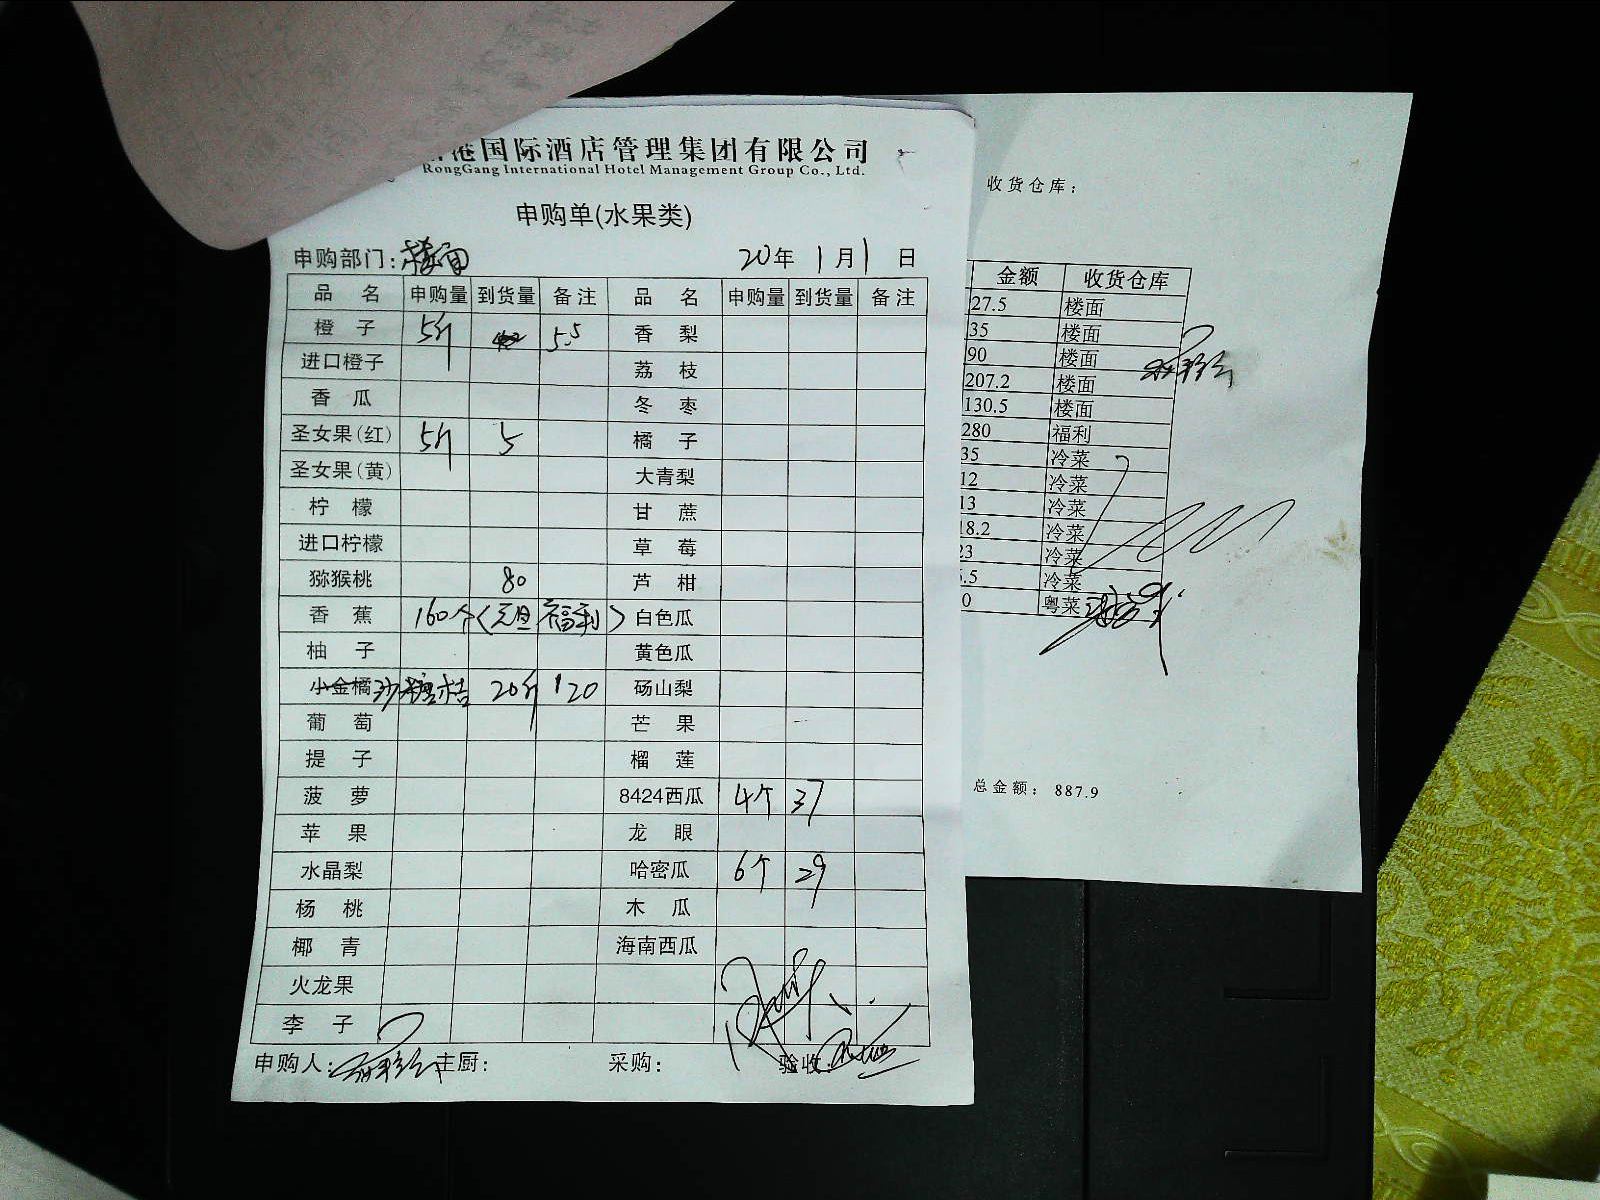 港国际酒店管理集团有限公司
RongGang International Hotel Management Group Co., Ltd.
申购单(水果类)
申购部门: 楼面 20年 1月1日
品名 申购量 到货量 备注 品名 申购量 到货量 备注
橙子 5斤 5.5 香梨
进口橙子 荔枝
香瓜 冬枣
圣女果(红) 5斤 5 橘子
圣女果(黄) 大青梨
柠檬 甘蔗
进口柠檬 草莓
猕猴桃 80 芦柑
香蕉 160个(元旦福利) 白色瓜
柚子 黄色瓜
小金橘 沙糖桔 20斤 20 砀山梨
葡萄 芒果
提子 榴莲
菠萝 8424西瓜 4个 37
苹果 龙眼
水晶梨 哈密瓜 6个 29
杨桃 木瓜
椰青 海南西瓜
火龙果
李子
申购人: 主厨: 采购: 验收:
收货仓库:
金额 收货仓库
27.5 楼面
35 楼面
90 楼面
207.2 楼面
130.5 楼面
280 福利
35 冷菜
12 冷菜
13 冷菜
18.2 冷菜
23 冷菜
.5 冷菜
0 粤菜
总金额: 887.9